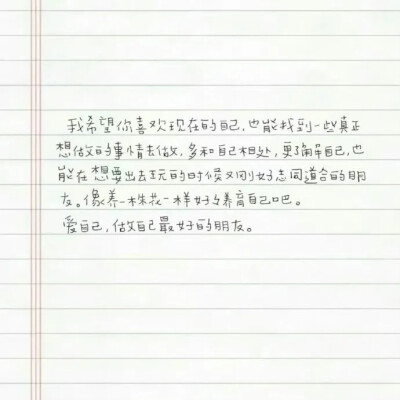 我希望你喜欢现在的自己，也能找到一些真正
想做的事情去做，多和自己相处，更了解自己，也
能在想要出去玩的时候叉到好志同道合的朋
友。像养一株花一样好好养育自己吧。
爱自己，做自己最好的朋友。